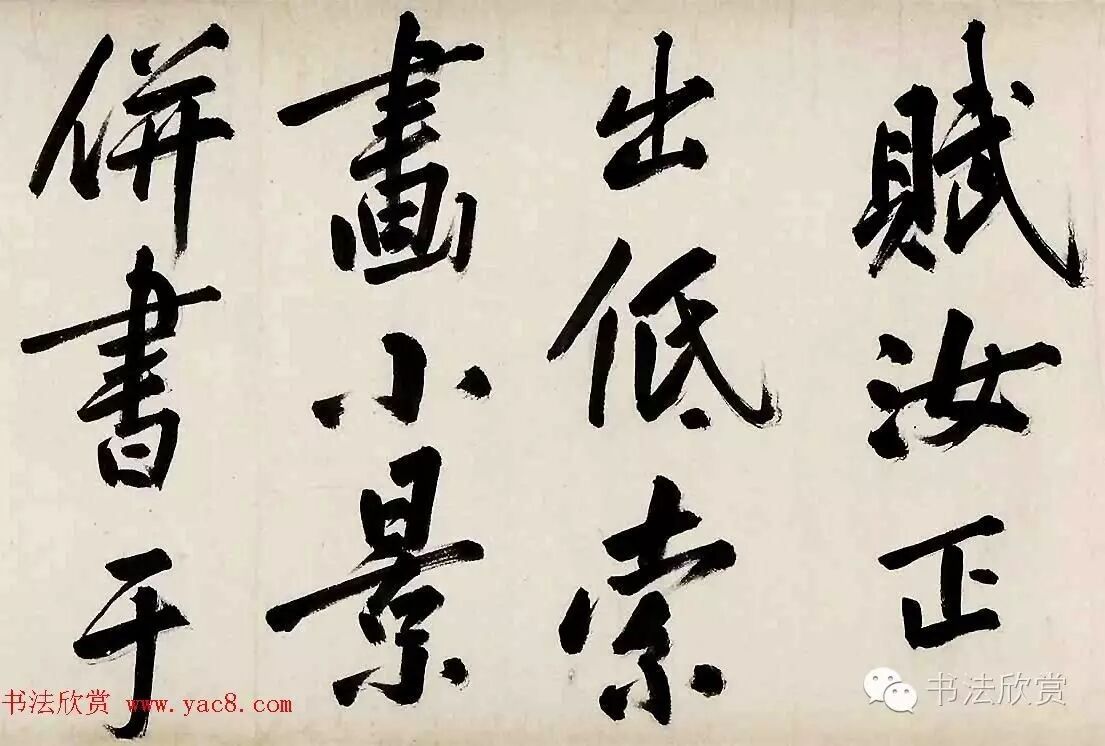 賦汝正
出低索
畫小景
併書于
书法欣赏 www.yac8.com
书法欣赏